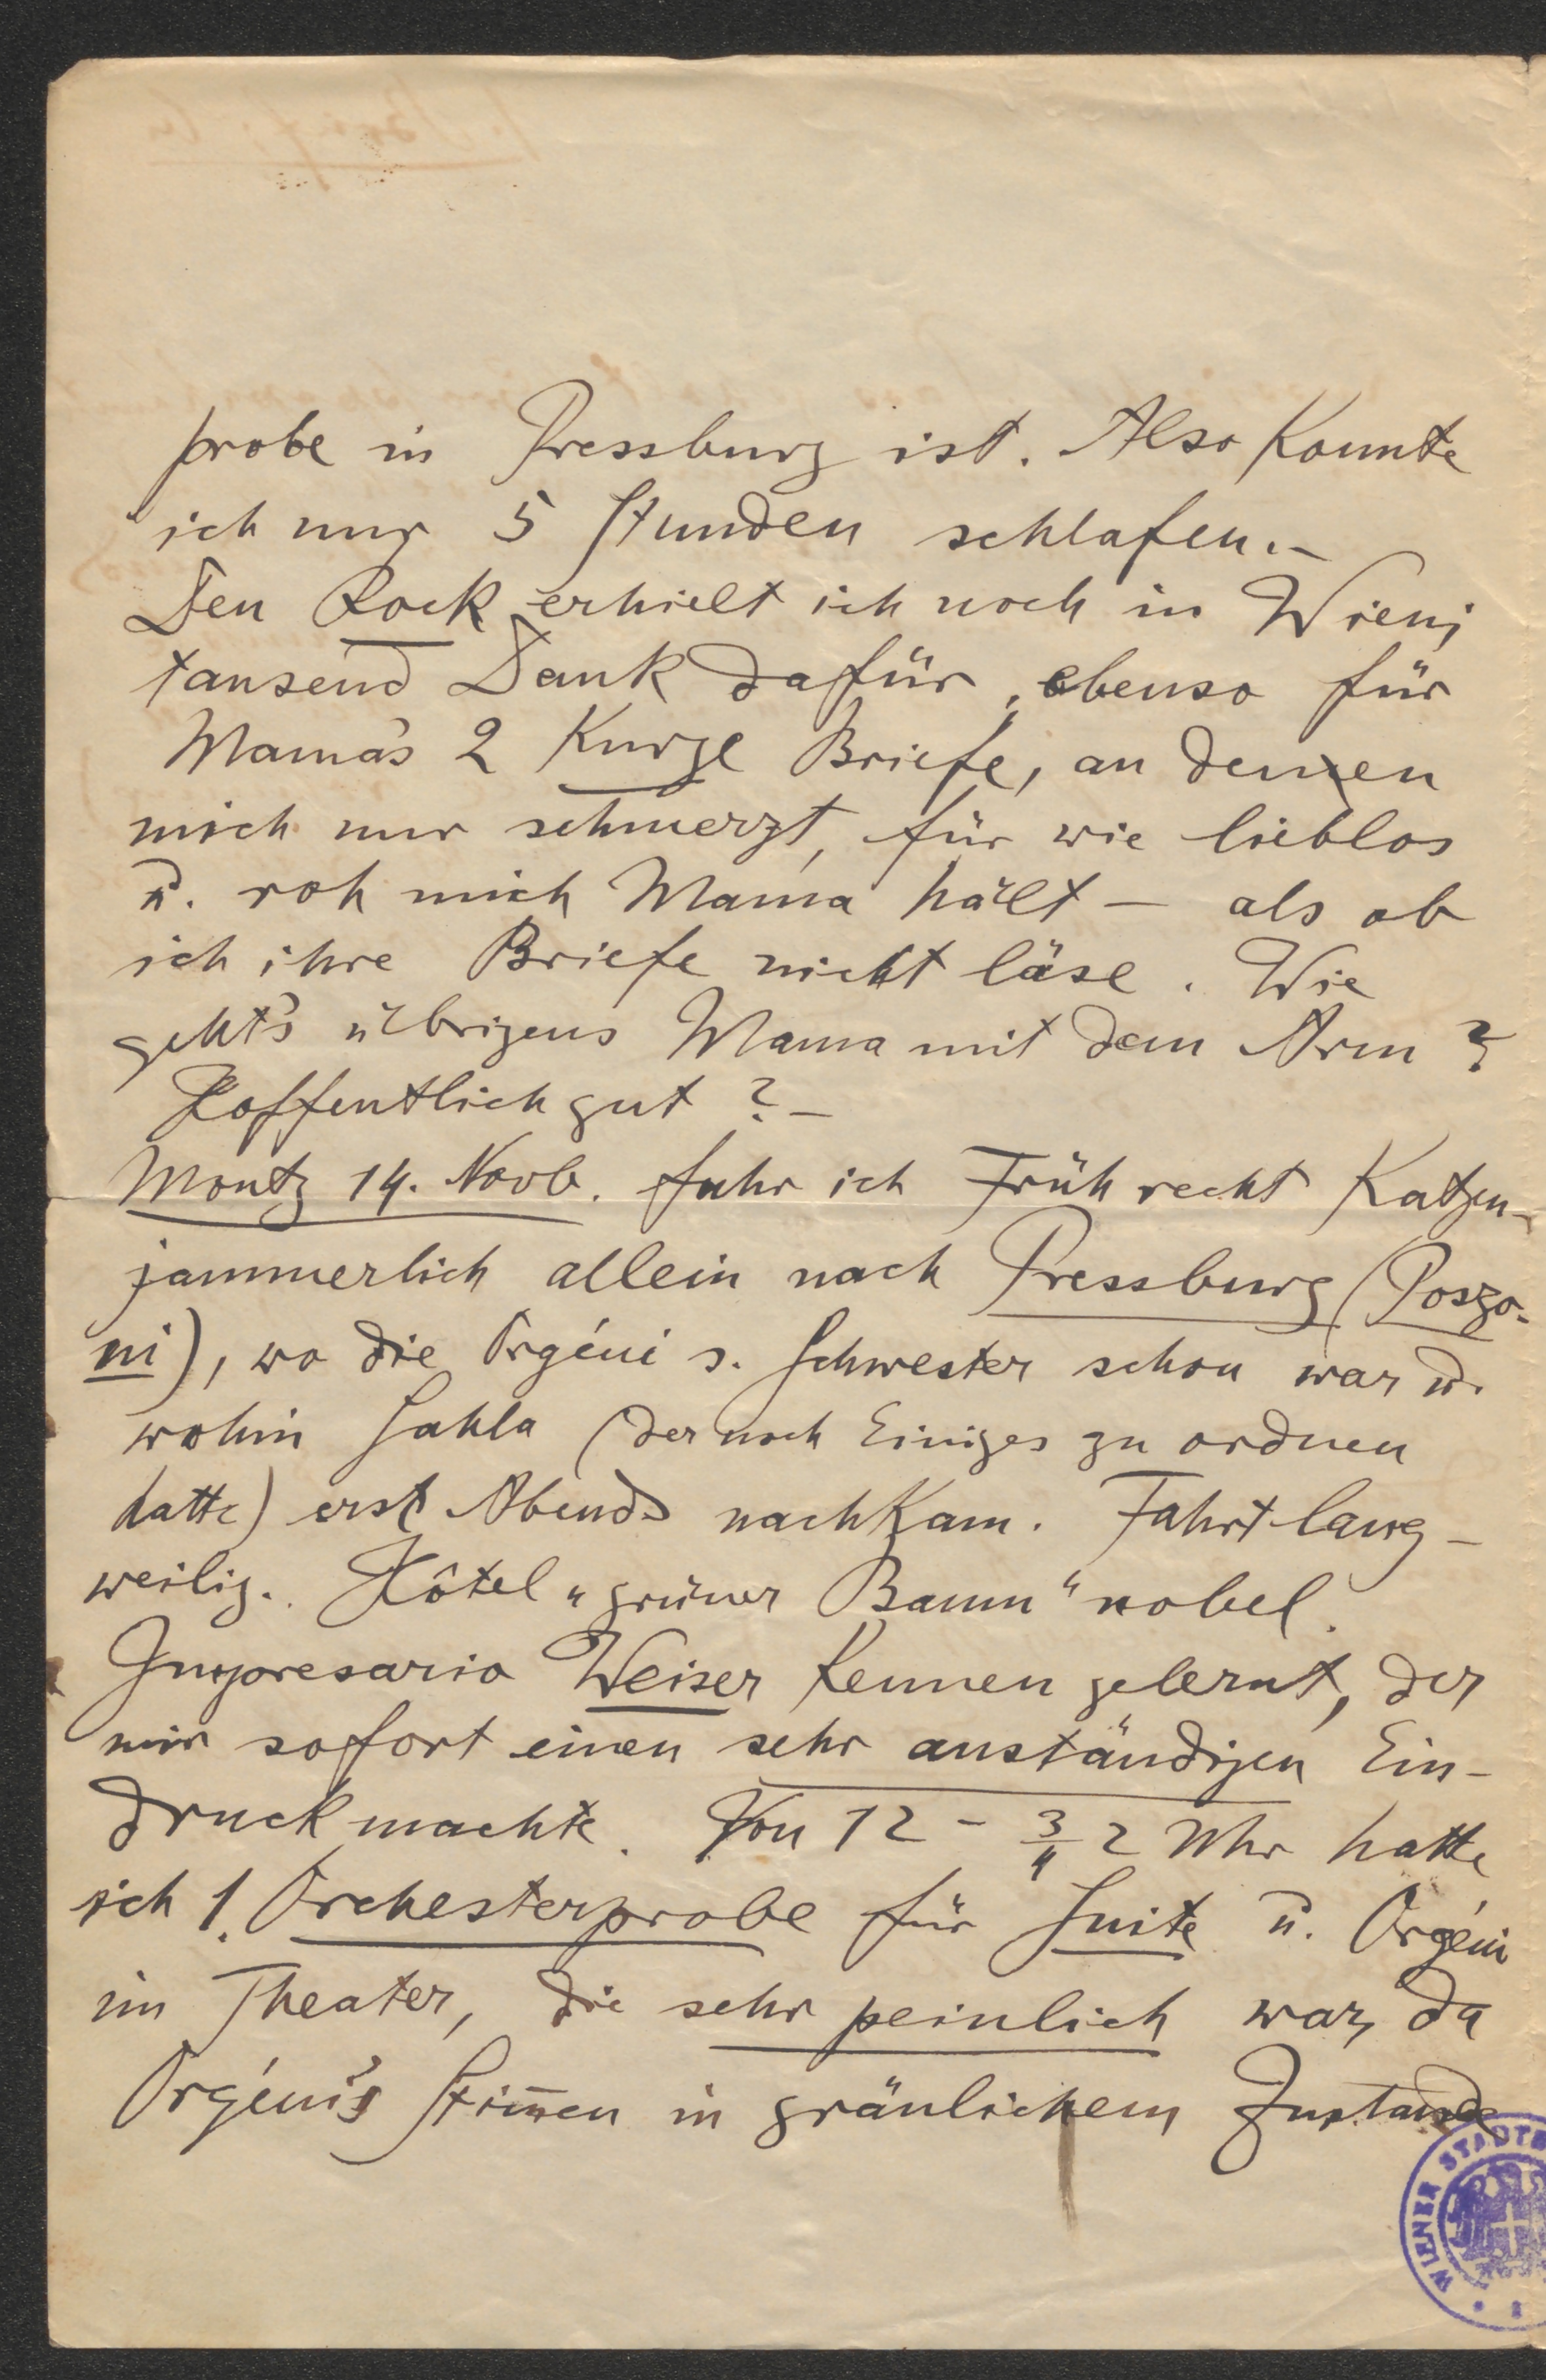 probe in Pressburg ist. Also konnte
ich nur 5 Stunden schlafen.–
Den Rock erhielt ich noch in Wien;
tausend Dank dafür, ebenso für
Mama's 2 kurze Briefe, an denen
mich nur schmerzt, für wie lieblos
u. roh mich Mama hält – als ob
ich ihre Briefe nicht läse. Wie
geht's übrigens Mama mit dem Arm?
Hoffentlich gut? –
Montg 14. Novb. fuhr ich Früh recht Katzen-
jammerlich allein nach Pressburg (Poszo-
ni), wo die Orgéni s. Schwester schon war u.
wohin Sahla (der noch Einiges zu ordnen
hatte) erst Abends nachkam. Fahrt lang-
weilig. Hôtel „grüner Baum" nobel.
Impresario Weiser kennen gelernt, der
mir sofort einen sehr anständigen Ein-
druck machte. Von 12 – 3/4 2 Uhr hatte
ich 1. Orchesterprobe für Suite u. Orgéni
im Theater, die sehr peinlich war, da
Orgéni's Stim̅en in gräulichem Zustande
WIENER STADTB